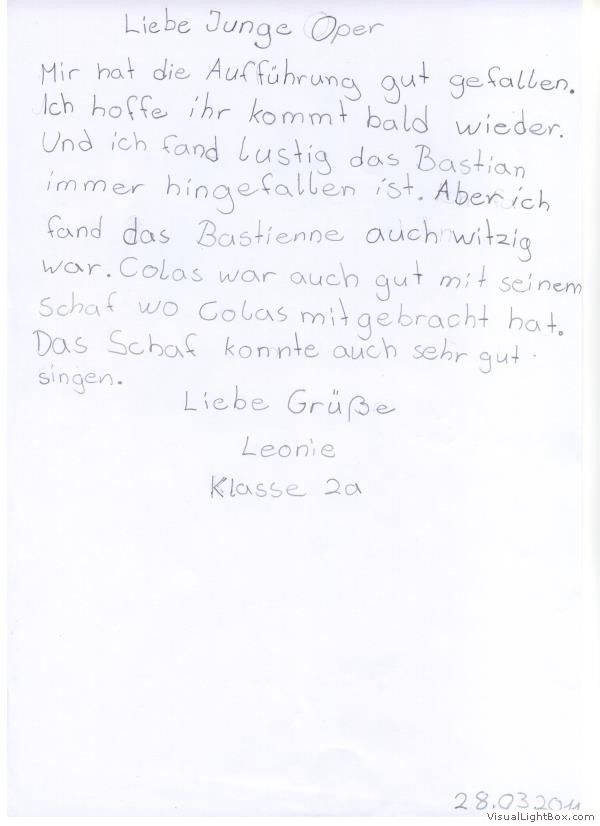 Liebe Junge Oper
Mir hat die Aufführung gut gefallen.
Ich hoffe ihr kommt bald wieder.
Und ich fand lustig das Bastian
immer hingefallen ist. Aber ich
fand das Bastienne auch witzig
war. Colas war auch gut mit seinem
Schaf wo Colas mitgebracht hat.
Das Schaf konnte auch sehr gut
singen.
Liebe Grüße
Leonie
Klasse 2a
28.03.2011
VisualLightBox.com